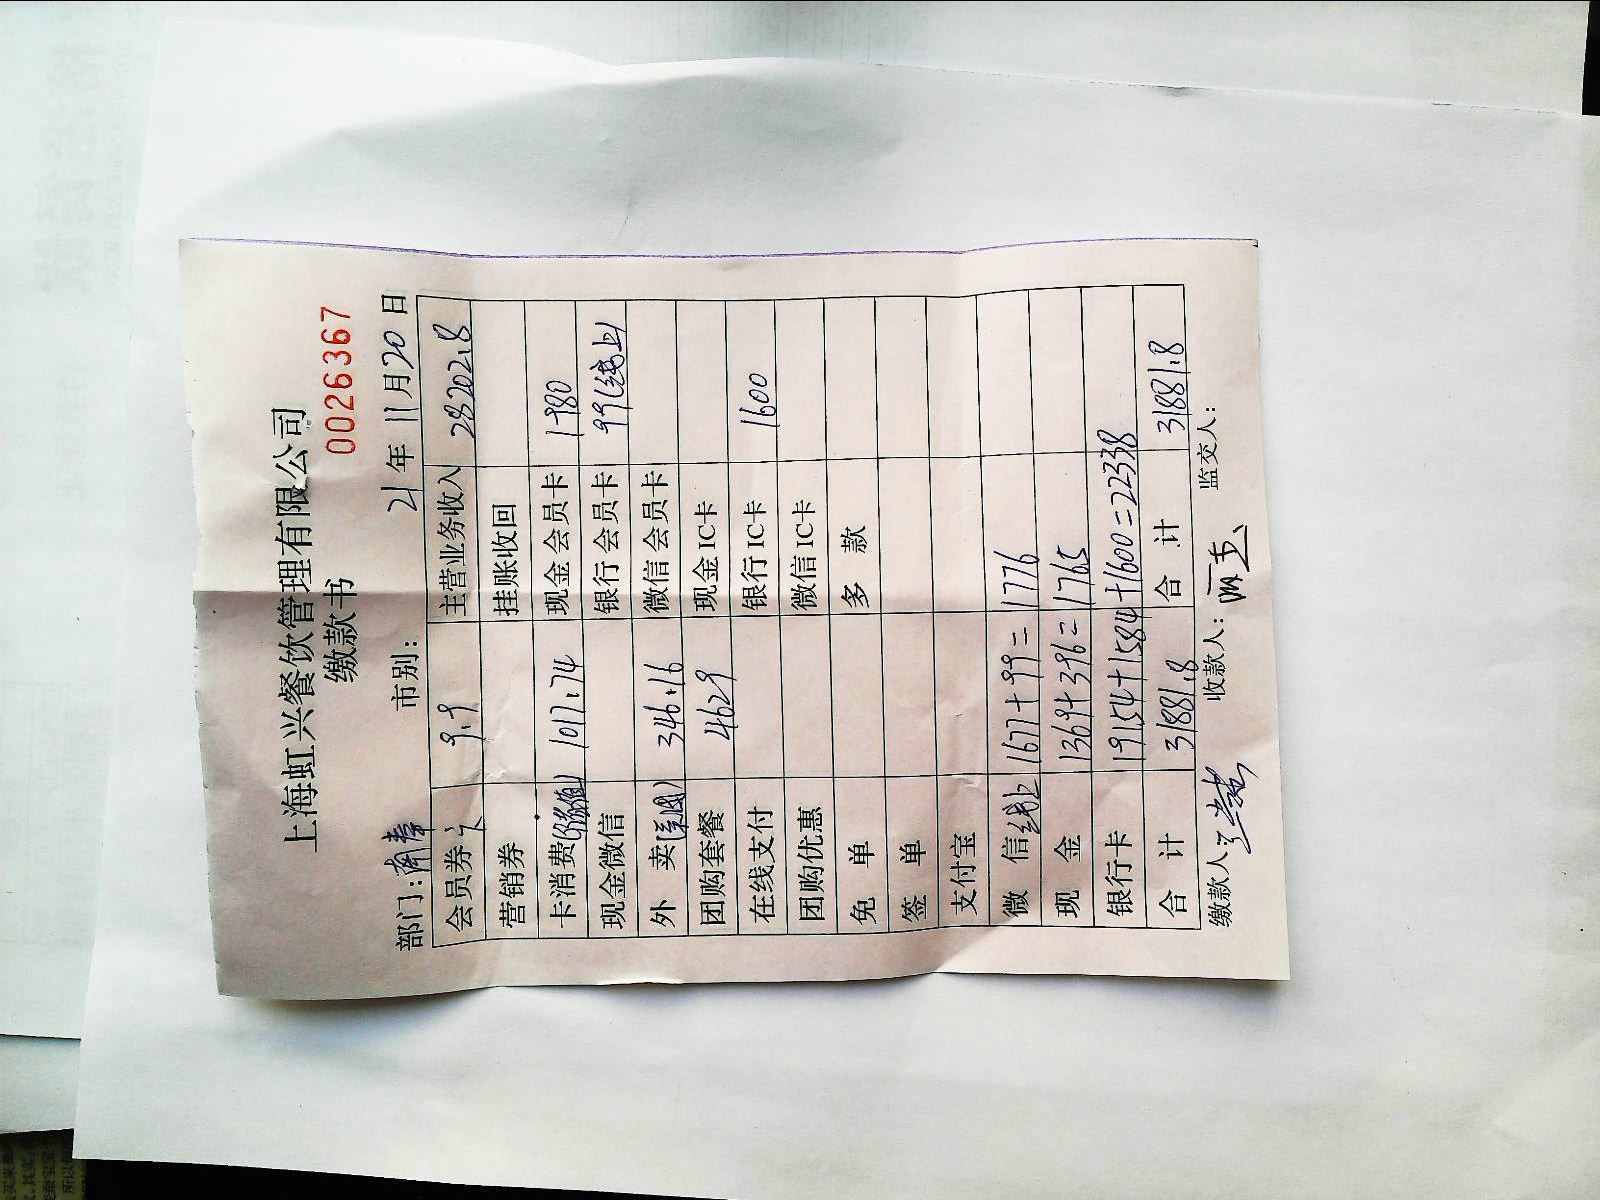 上海虹兴餐饮管理有限公司
缴款书 0026367
部门: 市别: 21年11月20日
会员券 9.9 主营业务收入 28202.8
营销券 挂账收回
卡消费 1017.74 现金会员卡 1980
现金微信 银行会员卡 99(线上)
外 卖(美团) 346.16 微信会员卡
团购套餐 4629 现金IC卡
在线支付 银行IC卡 1600
团购优惠 微信IC卡
免 单 多 款
签 单
支付宝
微 信 线上 1677+99=1776
现 金 1369+396=1765
银行卡 19154+1584+1600=22338
合 计 31881.8 合 计 31881.8
缴款人: 收款人: 监交人: